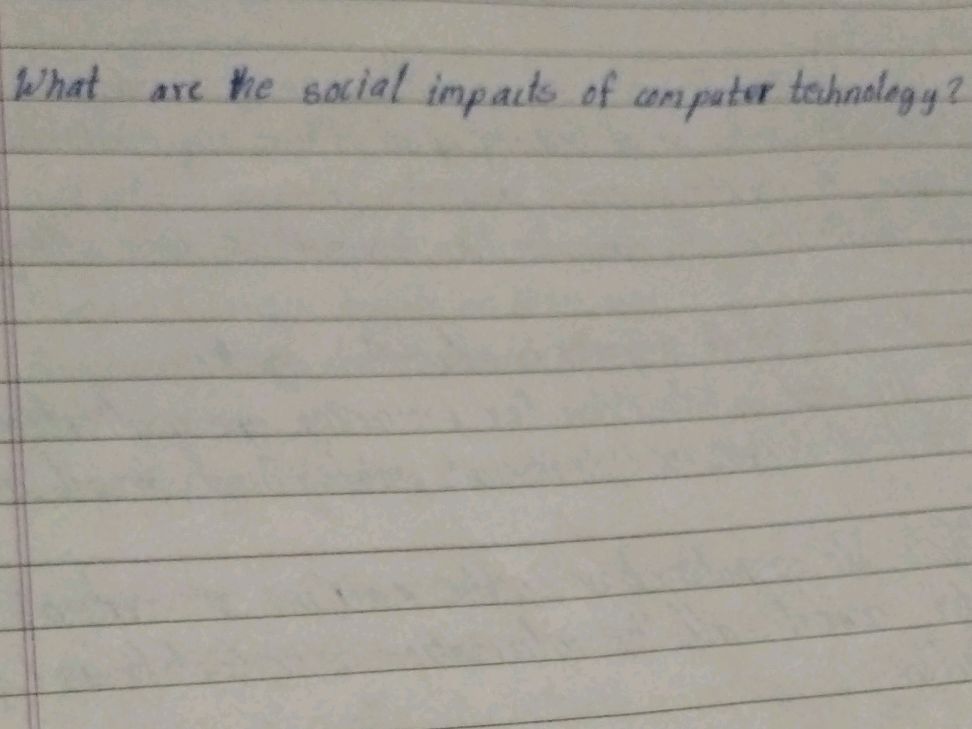 What are the social impacts of computer technology?